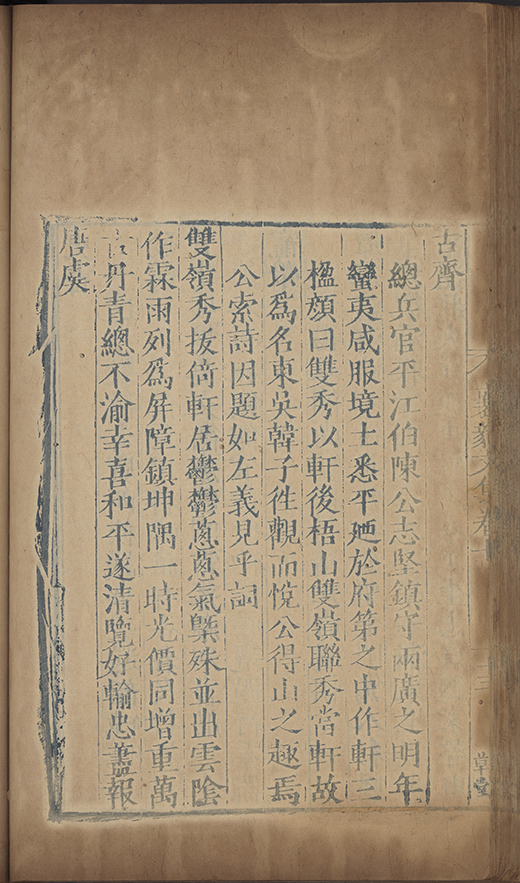 古齊
總兵官平江伯陳公志堅鎮守兩廣之明年
蠻夷咸服境土悉平廼於府第之中作軒三
楹顔曰雙秀以軒後梧山雙嶺聯秀當軒故
以爲名東吳韓子徃觀而悅公得山之趣焉
公索詩因題如左義見乎詞
雙嶺秀拔倚軒居鬱鬱蔥蔥氣槩殊並出雲陰
作霖雨列爲屏障鎮坤隅一時光價同增重萬
古丹青總不渝幸喜和平遂清覽好輸忠藎報
唐虞
草堂